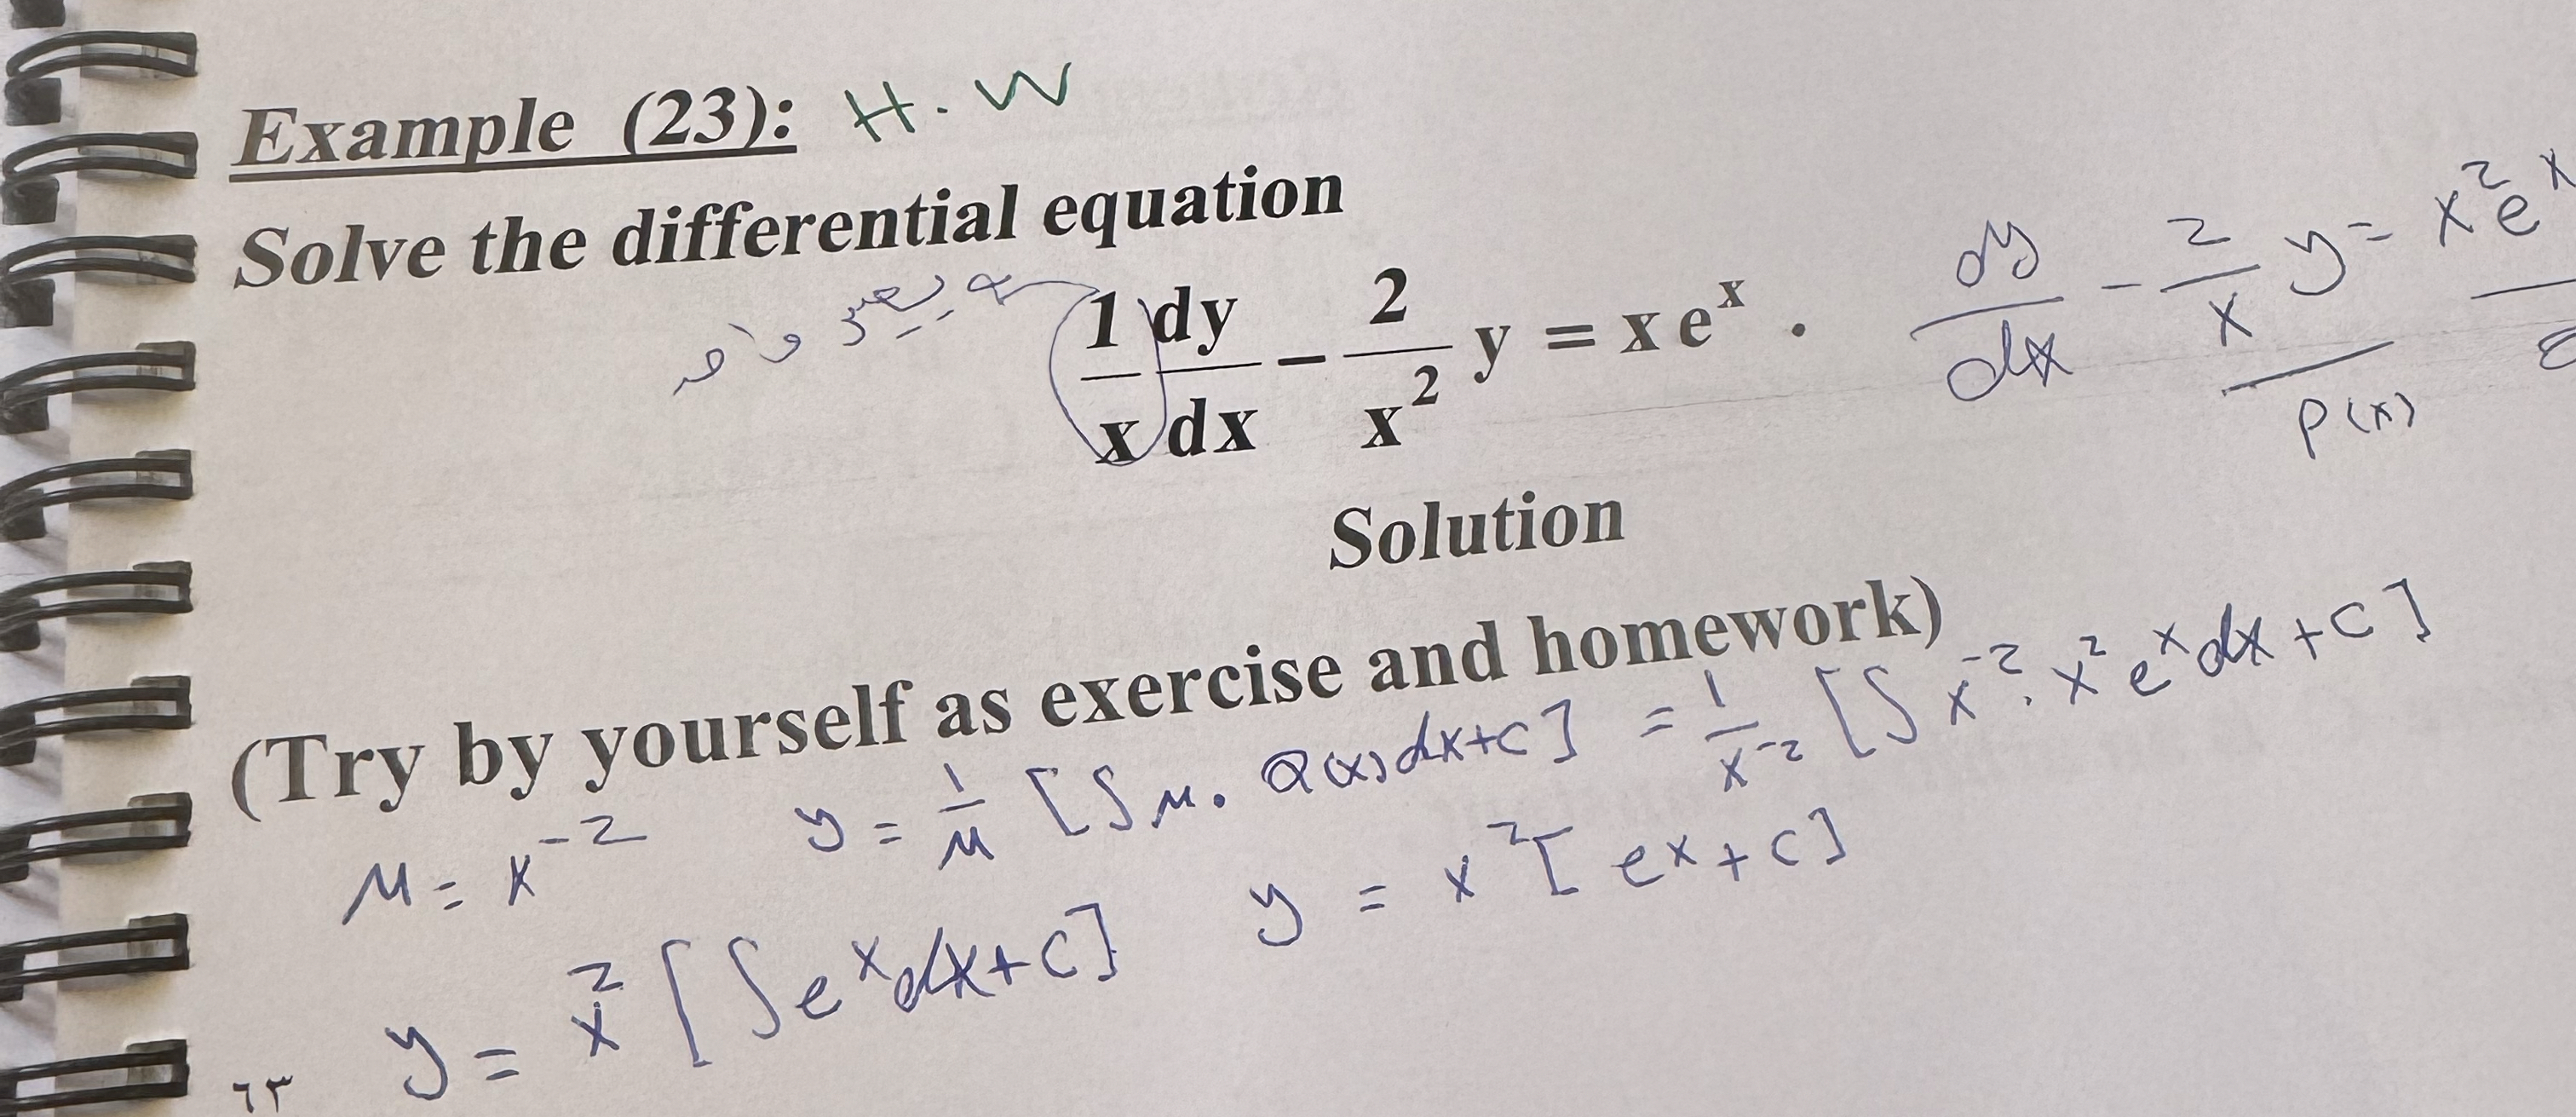 Example (23): H.W
Solve the differential equation
يصير واحد
1/x dy/dx − 2/x² y = x eˣ .
dy/dx - 2/x y = x² eˣ
P(x)
Solution
(Try by yourself as exercise and homework)
μ = x⁻² y = 1/μ [∫ μ . Q(x) dx + c] = 1/x⁻² [∫ x⁻² . x² eˣ dx + c]
y = x² [∫ eˣ dx + c] y = x² [eˣ + c]
٦٣